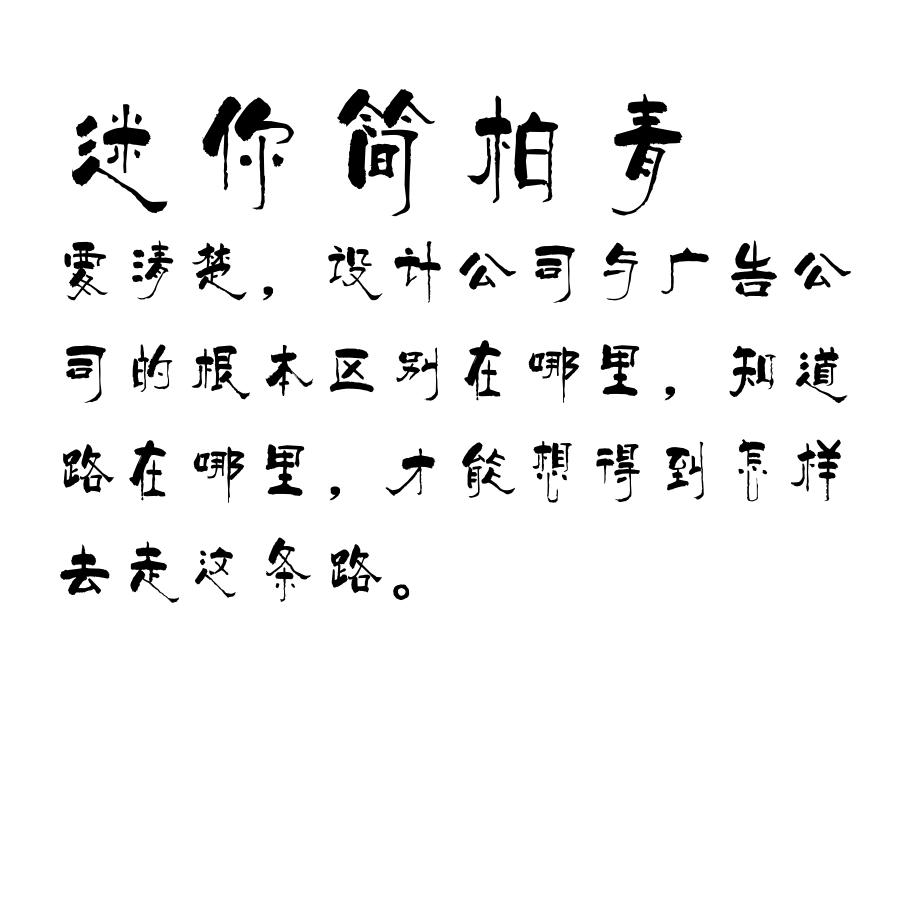 迷你简柏青
要清楚，设计公司与广告公
司的根本区别在哪里，知道
路在哪里，才能想得到怎样
去走这条路。